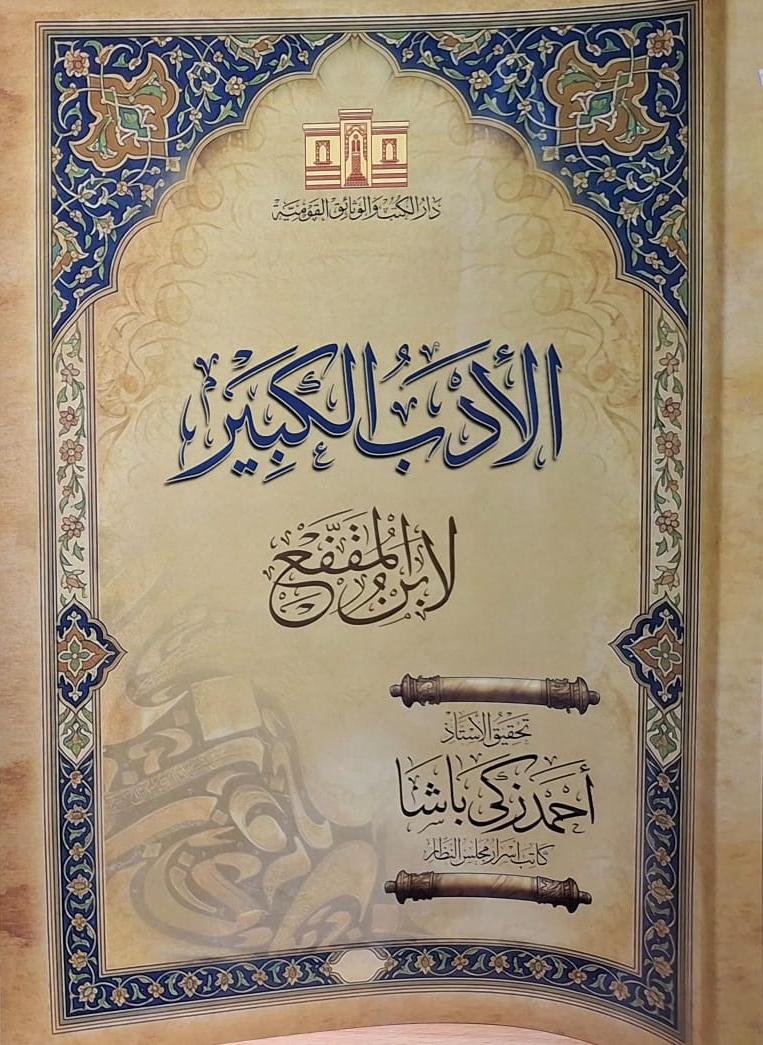 دار الكتب والوثائق القومية
الأدَبُ الكَبِيَر
لابن المُقَفَّع
تحقيق الأستاذ
أحمد زكي باشا
كاتب اسرار مجلس النظار